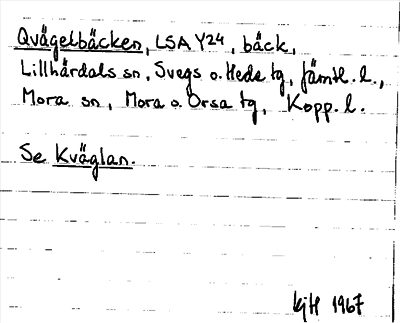 Qvägelbäcken, LSA Y24, bäck,
Lillhärdals sn, Svegs o. Hede tg, Jämtl. l.,
Mora sn, Mora o. Orsa tg, Kopp. l.
Se Kväglan.
KjH 1967